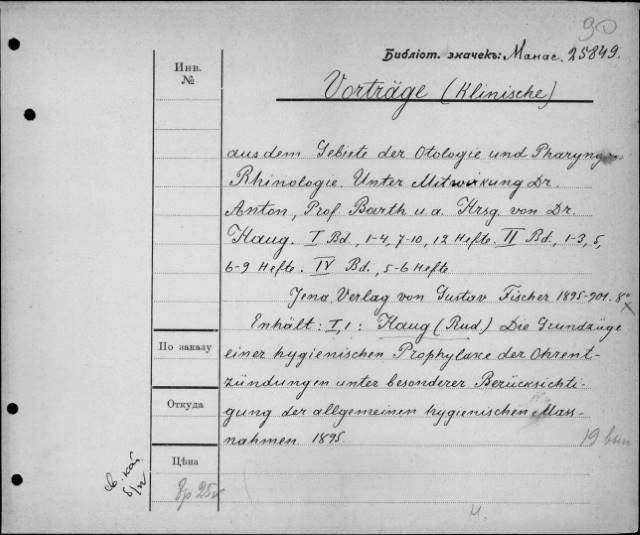 90
Библіот. значекъ: Манас. 25849.
Инв. №
Vorträge (Klinische)
aus dem Gebiete der Otologie und Pharyngo-
Rhinologie. Unter Mitwirkung Dr.
Anton, Prof. Barth u.a. Hrsg. von Dr.
Haug. I Bd., 1-4, 7-10, 12 Hefte. II Bd., 1-3, 5,
6-9 Hefte. IV Bd., 5-6 Hefte.
Jena. Verlag von Gustav Fischer 1895-901. 8°
Enhält: I,1: Haug (Rud.) Die Grundzüge
По заказу
einer hygienischen Prophylaxe der Ohrent-
zündungen unter besonderer Berücksichti-
Откуда
gung der allgemeinen hygienischen Mass-
nahmen 1895.
19 вып
Цѣна